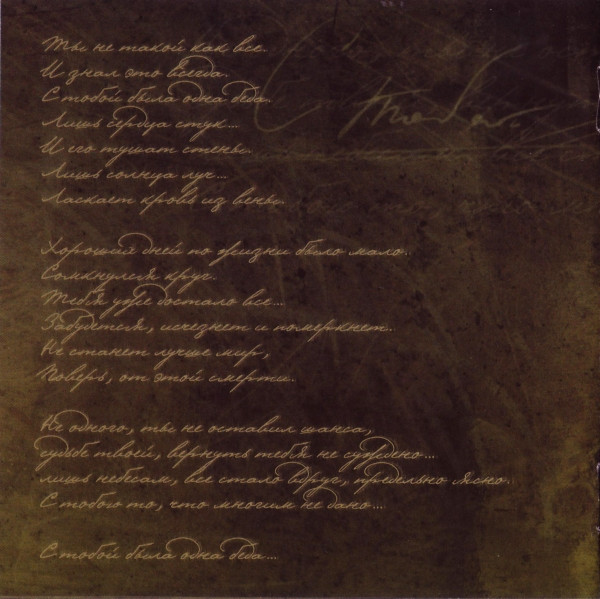 Ты не такой как все.
И знал это всегда.
С тобой была одна беда.
Лишь сердца стук...
И его тушат стены.
Лишь солнца луч...
Ласкает кровь из вены.
Хороших дней по жизни было мало.
Сомкнулся круг.
Тебя уже достало все...
Забудется, исчезнет и померкнет.
Не станет лучше мир,
Поверь, от этой смерти.
Не одного, ты не оставил шанса,
судьбе твоей, вернуть тебя не суждено...
лишь небесам, все стало вдруг, предельно ясно.
С тобою то, что многим не дано...
С тобой была одна беда...